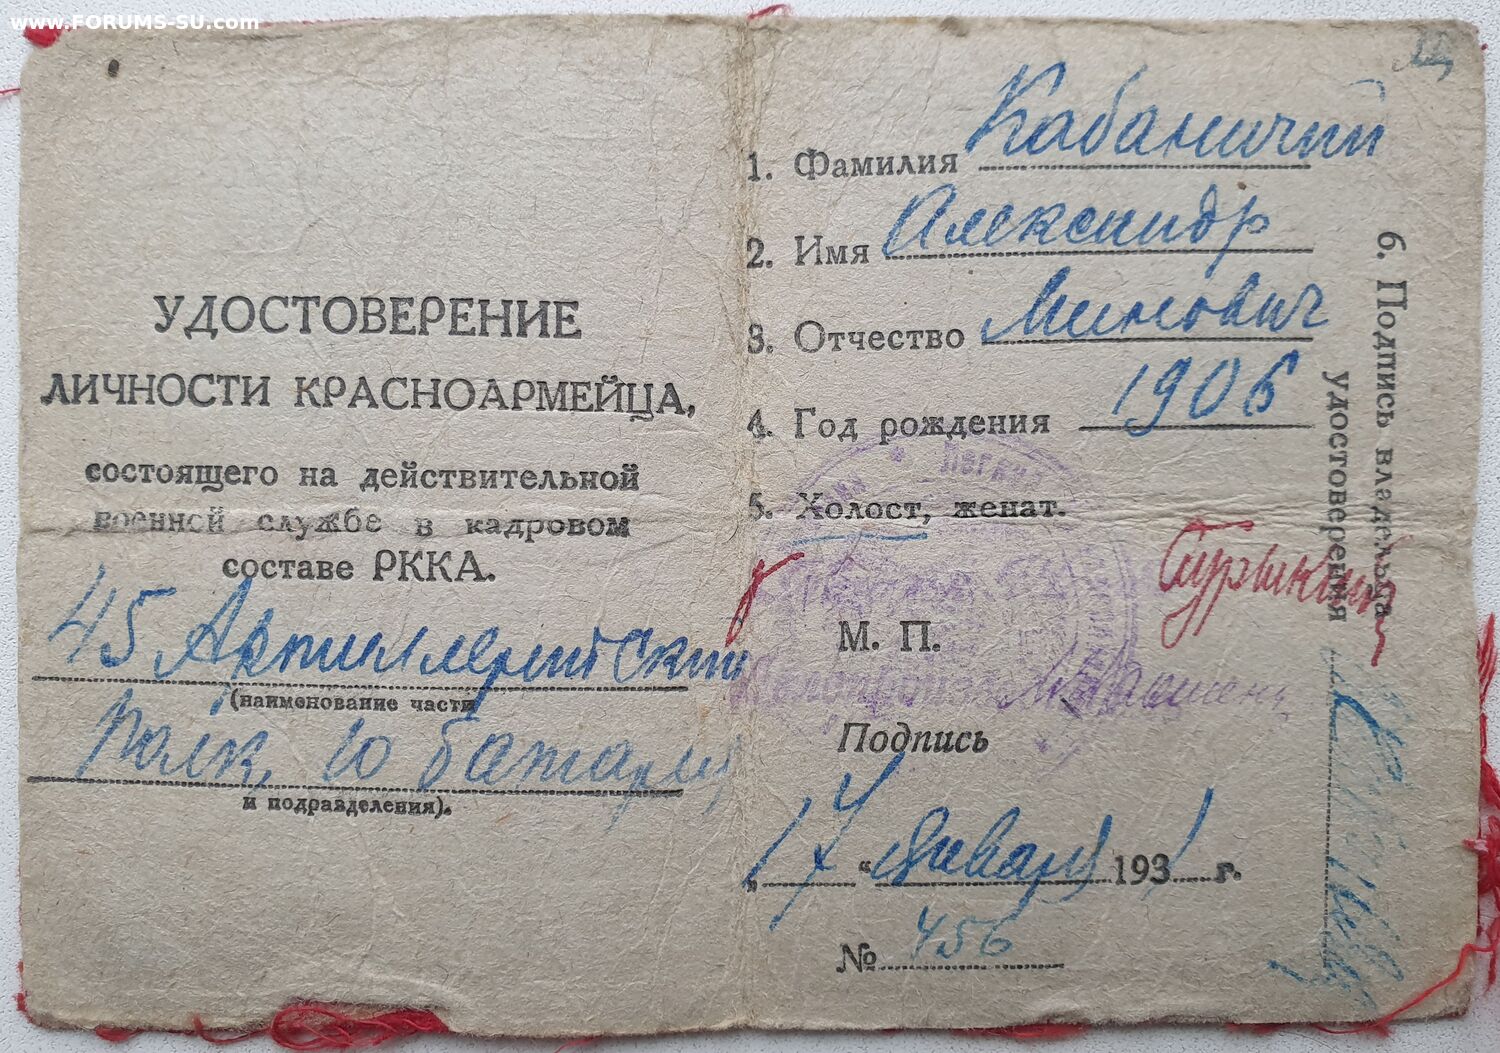 www.FORUMS-SU.com
УДОСТОВЕРЕНИЕ
ЛИЧНОСТИ КРАСНОАРМЕЙЦА,
состоящего на действительной
военной службе в кадровом
составе РККА.
45 Артиллерийский
(наименование части
полк, 10 батарея
и подразделения).
1. Фамилия Кабаничий
2. Имя Александр
3. Отчество Минович
4. Год рождения 1906
5. Холост, женат.
М. П.
Подпись
„17“ января 1931 г.
№ 456
6. Подпись владельца
удостоверения